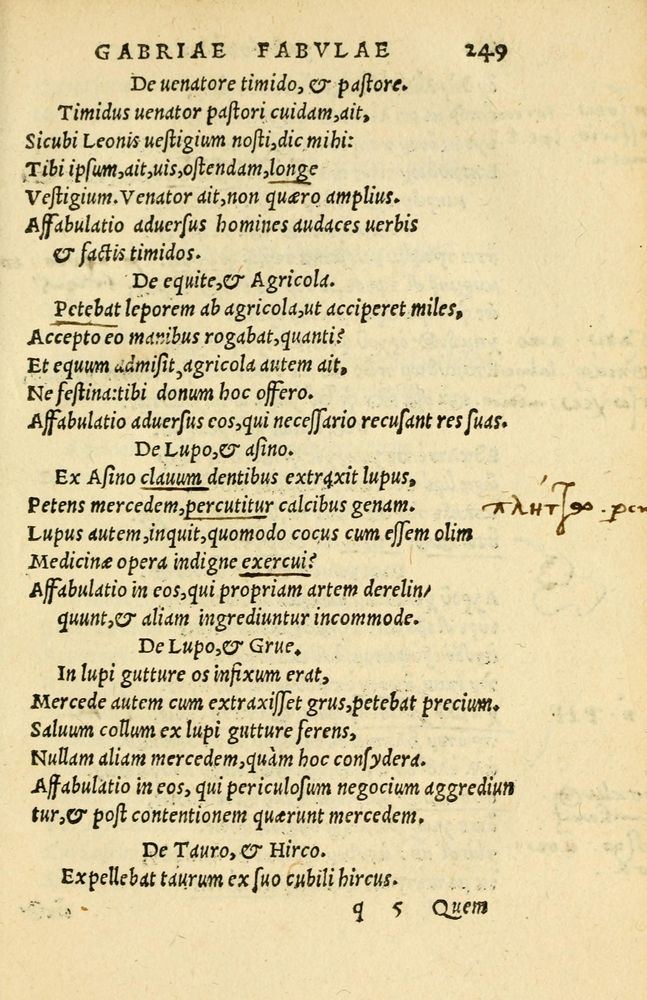 GABRIAE FABVLAE 249
De uenatore timido, & pastore.
Timidus uenator pastori cuidam, ait,
Sicubi Leonis uestigium nosti, dic mihi:
Tibi ipsum, ait, uis, ostendam, longe
Vestigium. Venator ait, non quæro amplius.
Affabulatio aduersus homines audaces uerbis
& factis timidos.
De equite, & Agricola.
Petebat leporem ab agricola, ut acciperet miles,
Accepto eo manibus rogabat, quanti?
Et equum admisit, agricola autem ait,
Ne festina: tibi donum hoc offero.
Affabulatio aduersus eos, qui necessario recusant res suas.
De Lupo, & asino.
Ex Asino clauum dentibus extraxit lupus,
Petens mercedem, percutitur calcibus genam.
Lupus autem, inquit, quomodo cocus cum essem olim
Medicinæ opera indigne exercui?
Affabulatio in eos, qui propriam artem derelin/
quunt, & aliam ingrediuntur incommode.
De Lupo, & Grue.
In lupi gutture os infixum erat,
Mercede autem cum extraxisset grus, petebat precium.
Saluum collum ex lupi gutture ferens,
Nullam aliam mercedem, quàm hoc consydera.
Affabulatio in eos, qui periculosum negocium aggrediun
tur, & post contentionem quærunt mercedem.
De Tauro, & Hirco.
Expellebat taurum ex suo cubili hircus.
q 5 Quem